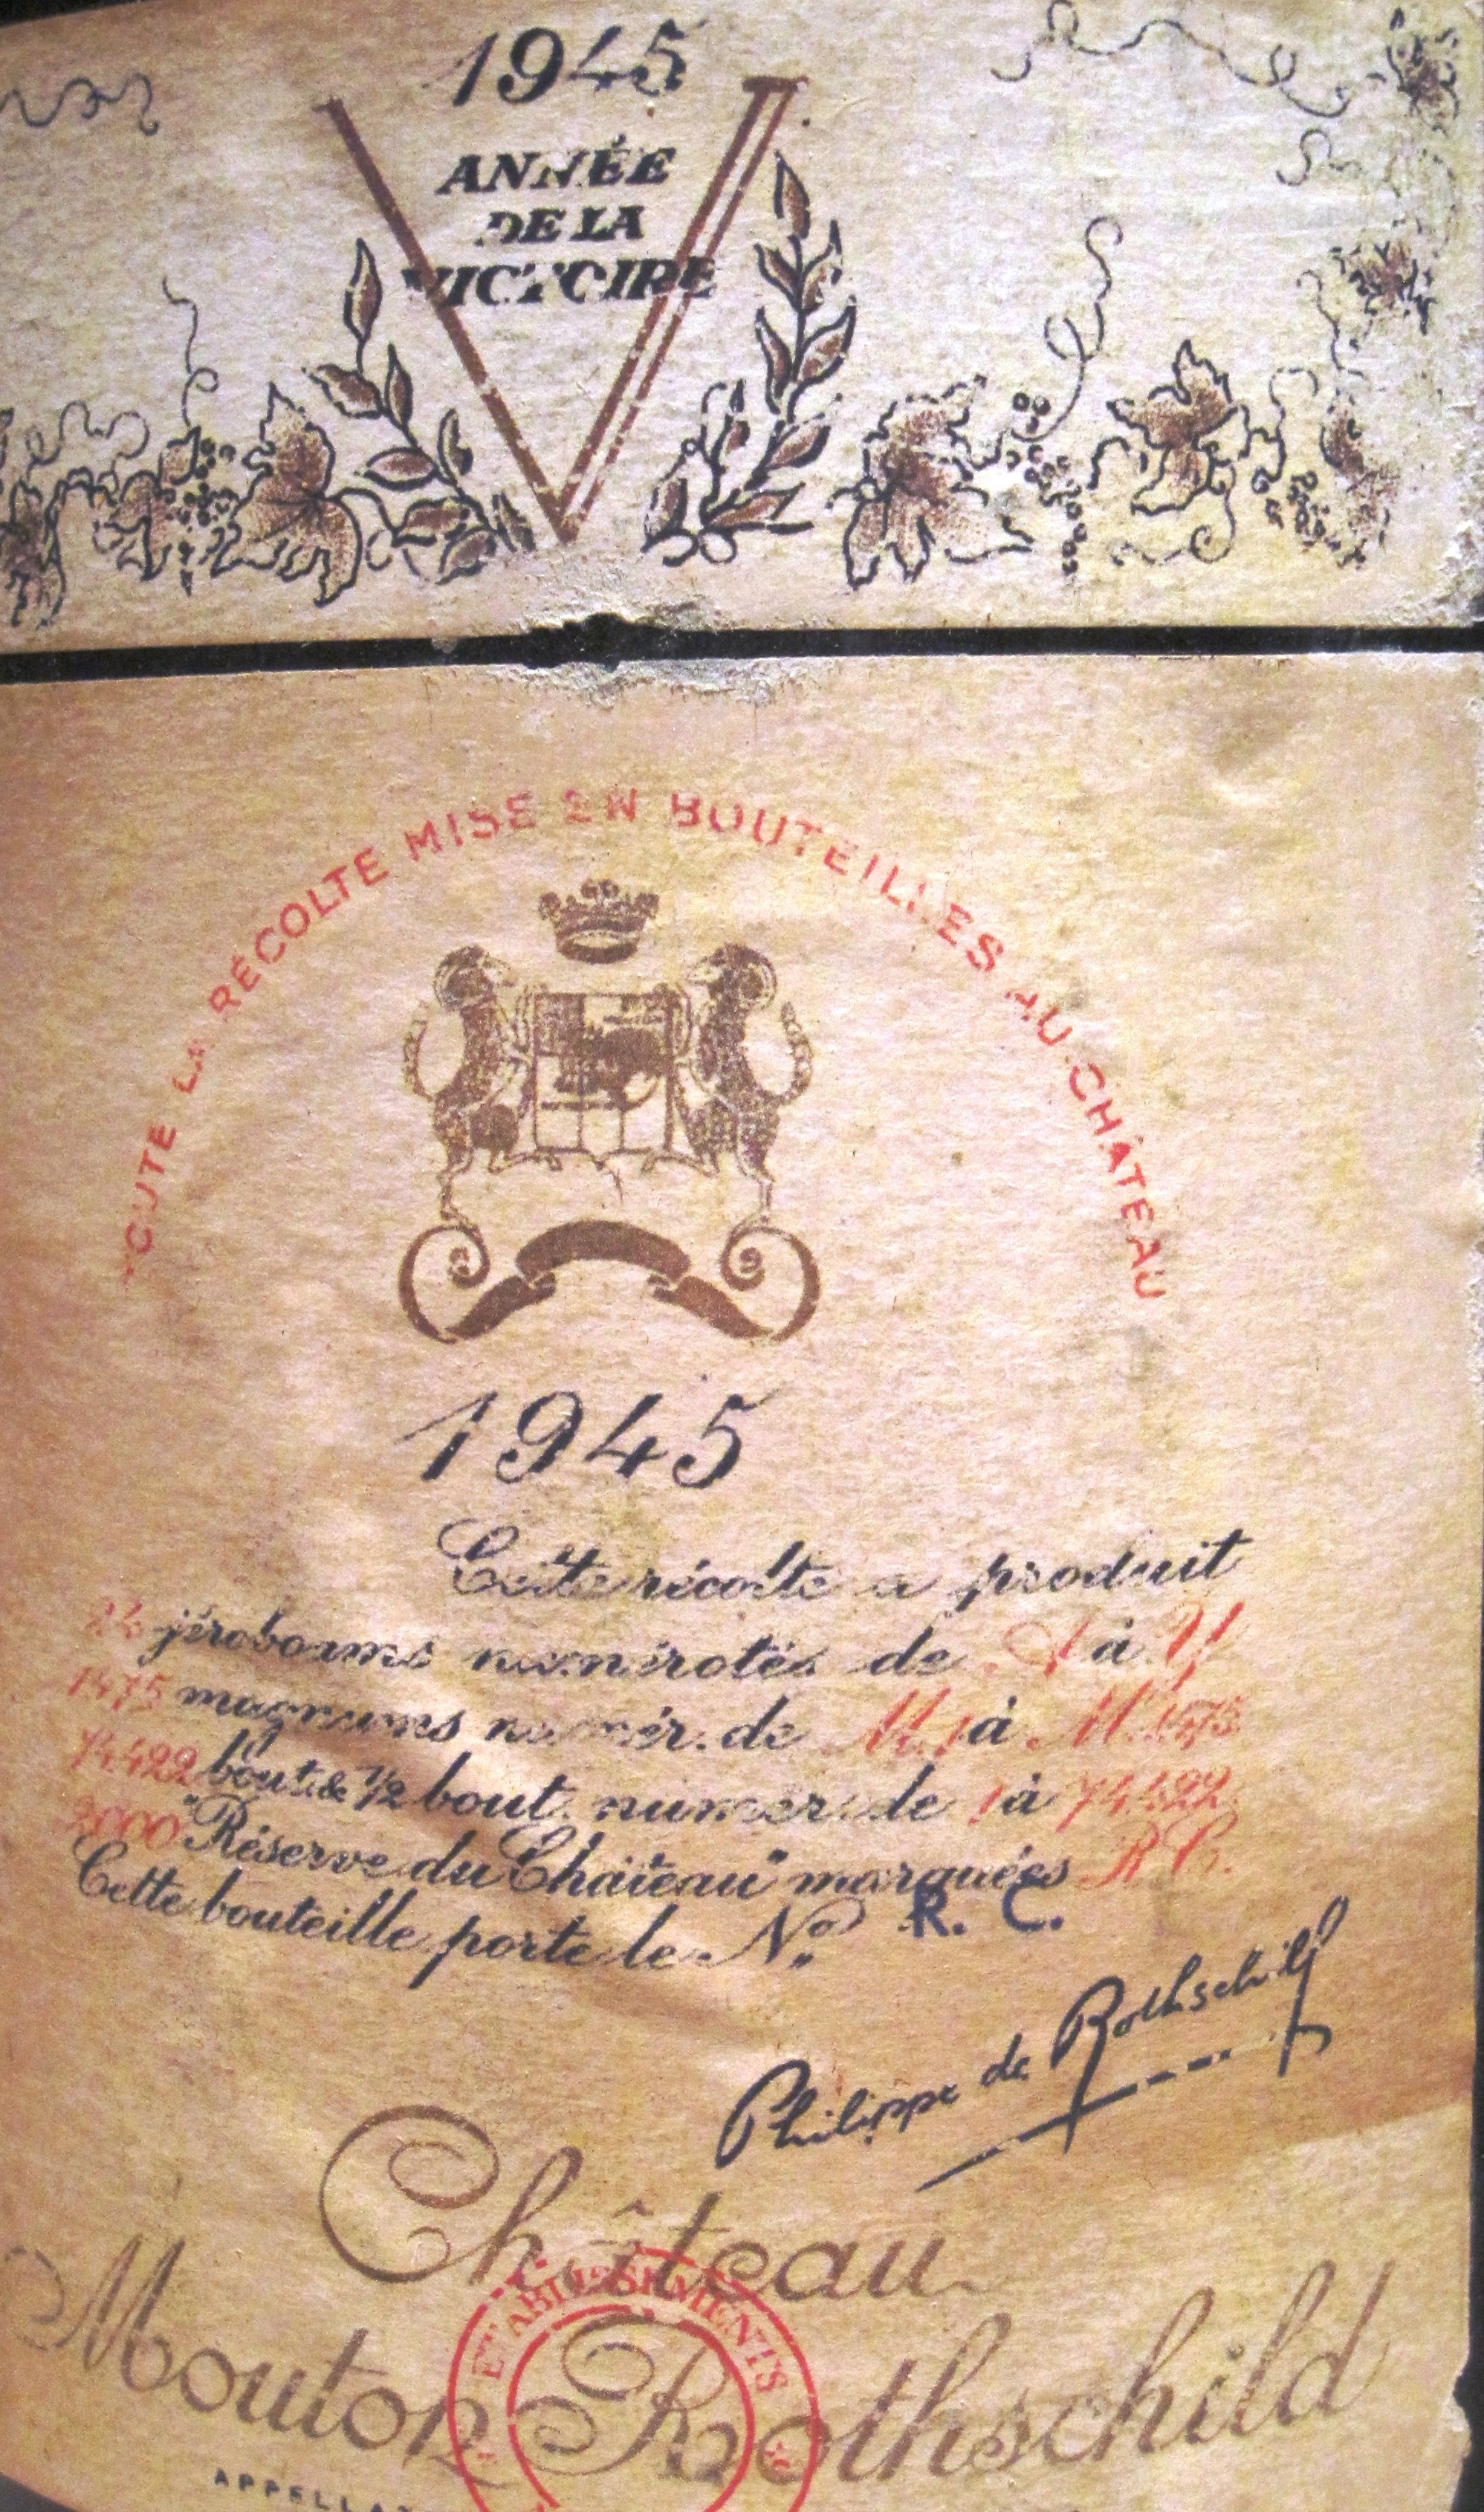 1945
ANNÉE
DE LA
VICTOIRE
TOUTE LA RÉCOLTE MISE EN BOUTEILLES AU CHÂTEAU
1945
Cette récolte a produit
24 jéroboams numérotés de A à Y
1475 magnums numér. de M.1 à M.1475
74.422 bout. & 1/2 bout. numér. de 1 à 74.422
2000 "Réserve du Château" marquées R.C.
Cette bouteille porte le No. R. C.
Philippe de Rothschild
Château
Mouton Rothschild
ETABLISSEMENTS